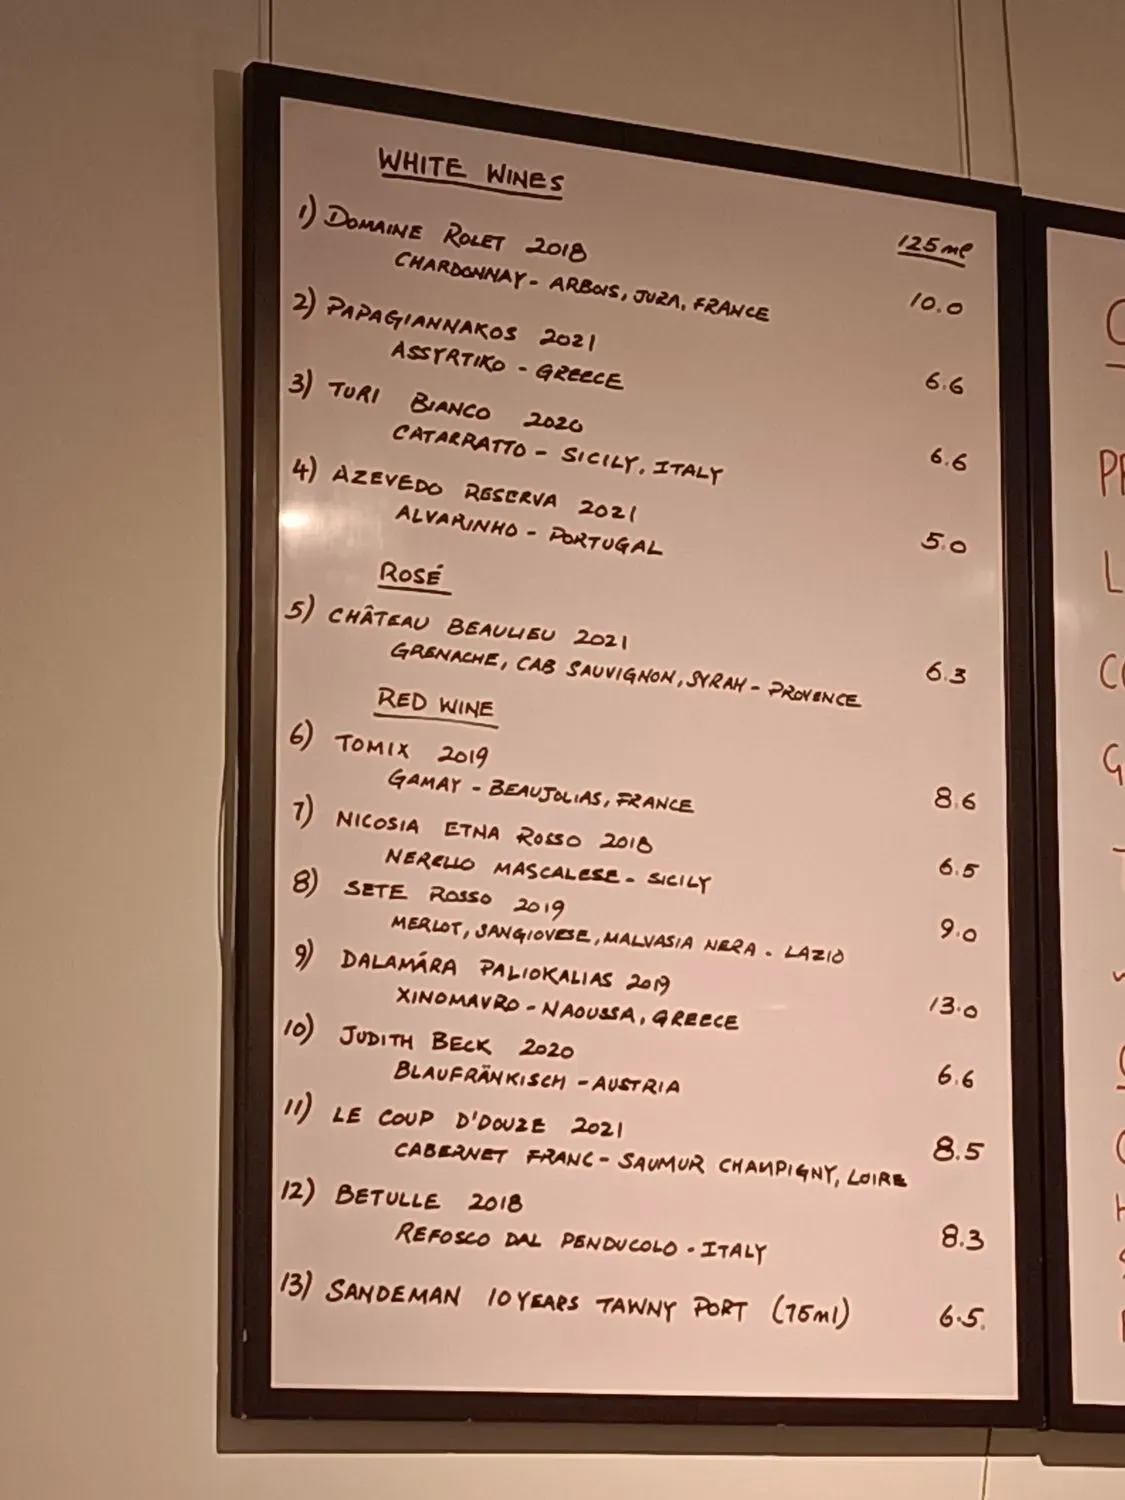 WHITE WINES
125 ml
1) DOMAINE ROLET 2018
CHARDONNAY - ARBOIS, JURA, FRANCE 10.0
2) PAPAGIANNAKOS 2021
ASSYRTIKO - GREECE 6.6
3) TURI BIANCO 2020
CATARRATTO - SICILY, ITALY 6.6
4) AZEVEDO RESERVA 2021
ALVARINHO - PORTUGAL 5.0
ROSÉ
5) CHÂTEAU BEAULIEU 2021
GRENACHE, CAB SAUVIGNON, SYRAH - PROVENCE 6.3
RED WINE
6) TOMIX 2019
GAMAY - BEAUJOLIAS, FRANCE 8.6
7) NICOSIA ETNA ROSSO 2018
NERELLO MASCALESE - SICILY 6.5
8) SETE ROSSO 2019
MERLOT, SANGIOVESE, MALVASIA NERA - LAZIO 9.0
9) DALAMÁRA PALIOKALIAS 2019
XINOMAVRO - NAOUSSA, GREECE 13.0
10) JUDITH BECK 2020
BLAUFRÄNKISCH - AUSTRIA 6.6
11) LE COUP D'DOUZE 2021
CABERNET FRANC - SAUMUR CHAMPIGNY, LOIRE 8.5
12) BETULLE 2018
REFOSCO DAL PENDUCOLO - ITALY 8.3
13) SANDEMAN 10 YEARS TAWNY PORT (75ml) 6.5.